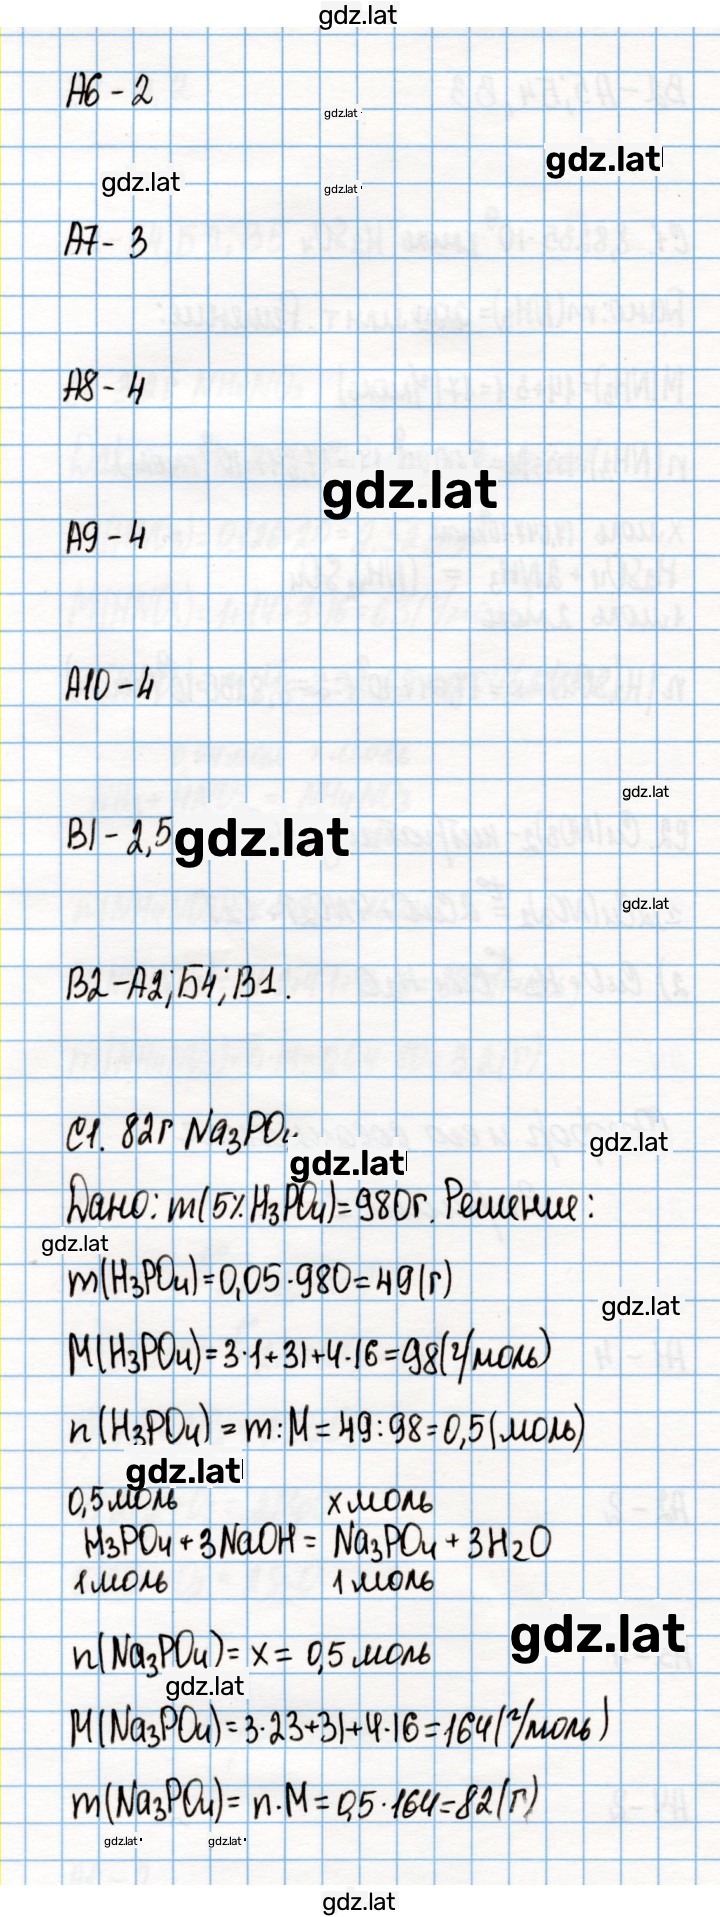 gdz.lat
А6 - 2
gdz.lat
gdz.lat
gdz.lat
gdz.lat
А7 - 3
А8 - 4
gdz.lat
А9 - 4
А10 - 4
gdz.lat
В1 - 2,5
gdz.lat
gdz.lat
В2 - А2; Б4; В1.
С1. 82г Na₃PO₄.
gdz.lat
gdz.lat
Дано: m(5% H₃PO₄)=980г. Решение:
gdz.lat
m(H₃PO₄)=0,05·980=49(г)
gdz.lat
M(H₃PO₄)=3·1+31+4·16=98(г/моль)
n(H₃PO₄)=m:M=49:98=0,5(моль)
gdz.lat
0,5 моль x моль
H₃PO₄+3NaOH= Na₃PO₄+3H₂O
1 моль 1 моль
gdz.lat
n(Na₃PO₄)=x= 0,5 моль
gdz.lat
M(Na₃PO₄)=3·23+31+4·16=164(г/моль)
m(Na₃PO₄)= n·M=0,5·164=82(г)
gdz.lat
gdz.lat
gdz.lat